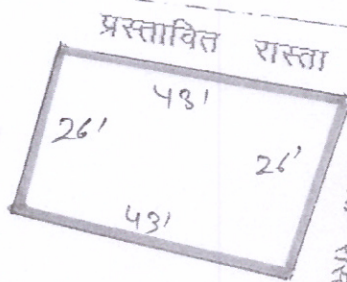 प्रस्तावित रास्ता
43'
26'
26'
43'